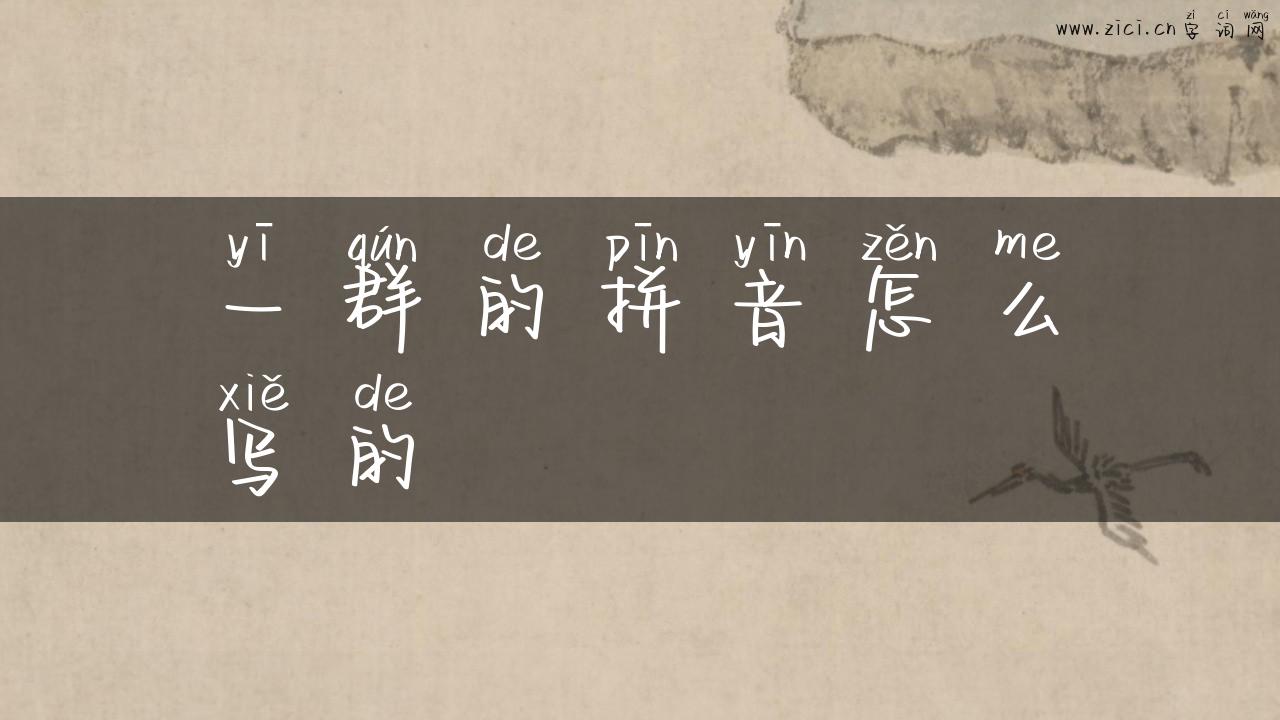 zì cí wǎng
www.zici.cn 字词网
yī qún de pīn yīn zěn me
一群的拼音怎么
xiě de
写的